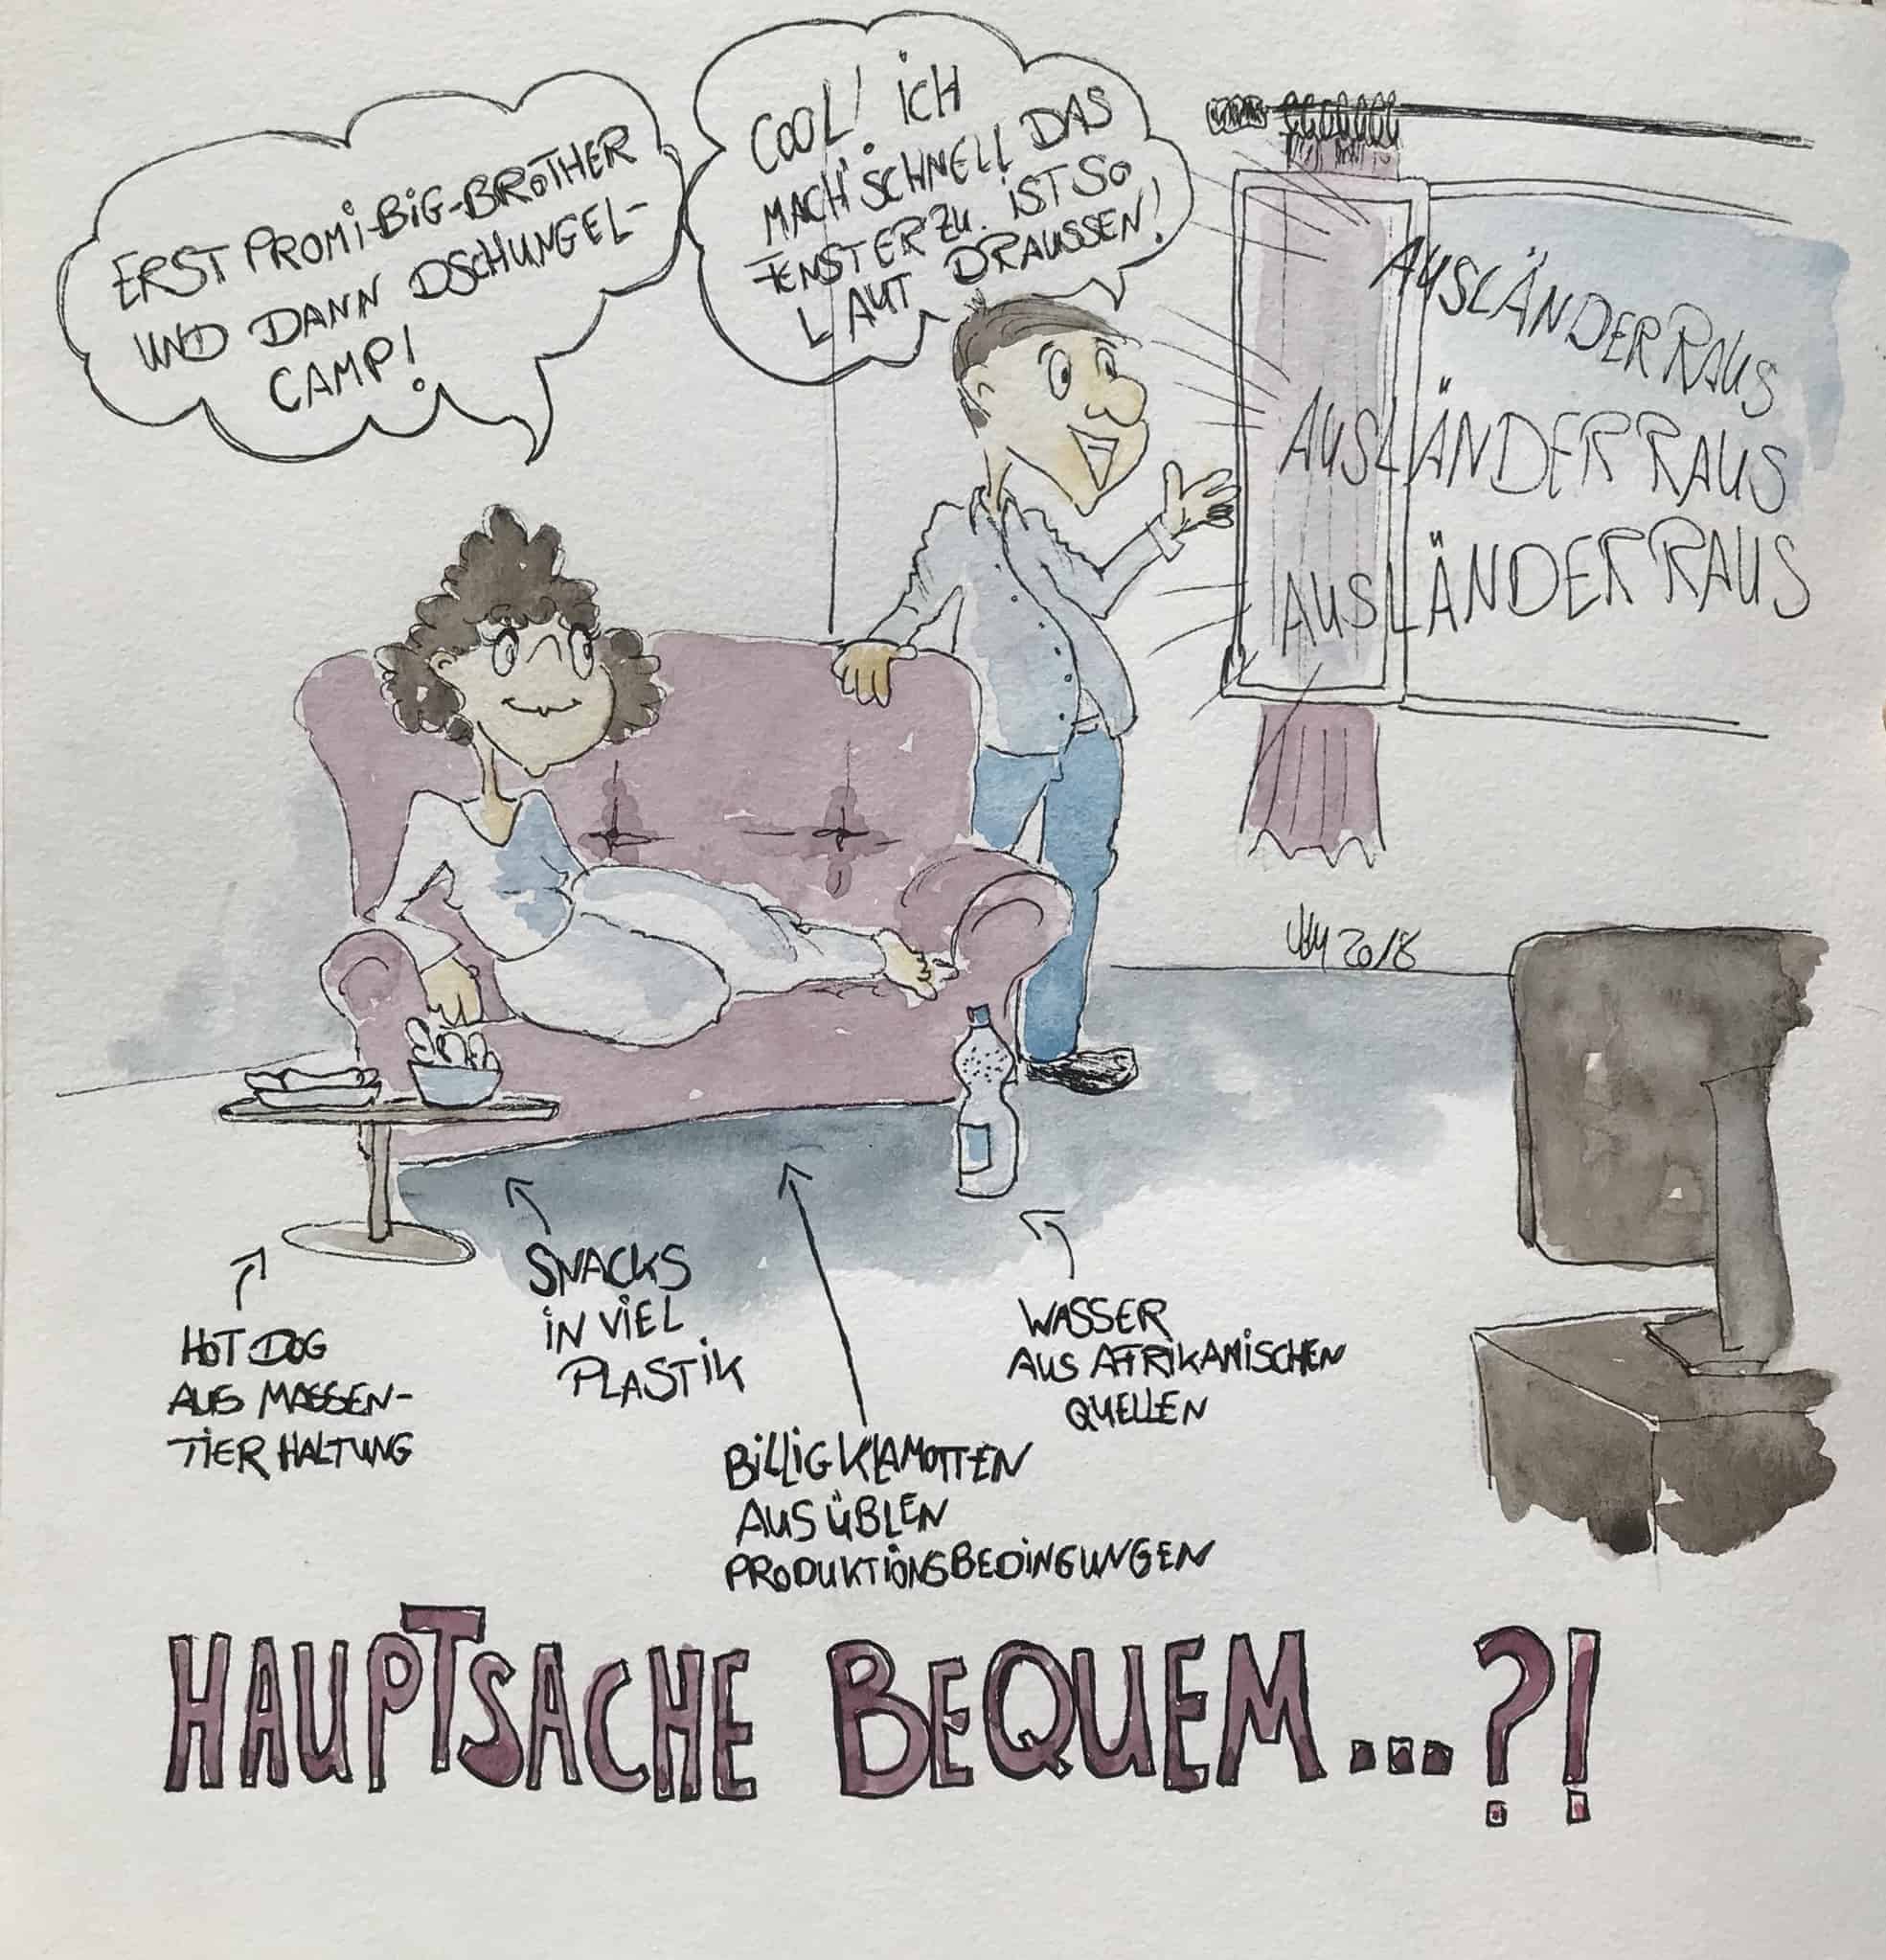 ERST PROMI-BIG-BROTHER
UND DANN DSCHUNGEL-
CAMP!
COOL! ICH
MACH' SCHNELL DAS
FENSTER ZU. IST SO
LAUT DRAUSSEN!
AUSLÄNDER RAUS
AUSLÄNDER RAUS
AUSLÄNDER RAUS
2018
HOT DOG
AUS MASSEN-
TIERHALTUNG
SNACKS
IN VIEL
PLASTIK
BILLIGKLAMOTTEN
AUS ÜBLEN
PRODUKTIONSBEDINGUNGEN
WASSER
AUS AFRIKANISCHEN
QUELLEN
HAUPTSACHE BEQUEM...?!